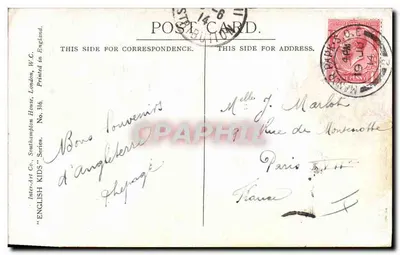 POST CARD.
THIS SIDE FOR CORRESPONDENCE.
THIS SIDE FOR ADDRESS.
Inter-Art Co., Southampton House, London, W.C.
"ENGLISH KIDS" Series. No. 316. Printed in England.
Bons souvenirs
d'Angleterre
Melle J. Marlot
9 Rue de Montenotte
Paris
France
MANOR PARK
14
www.cparama.com